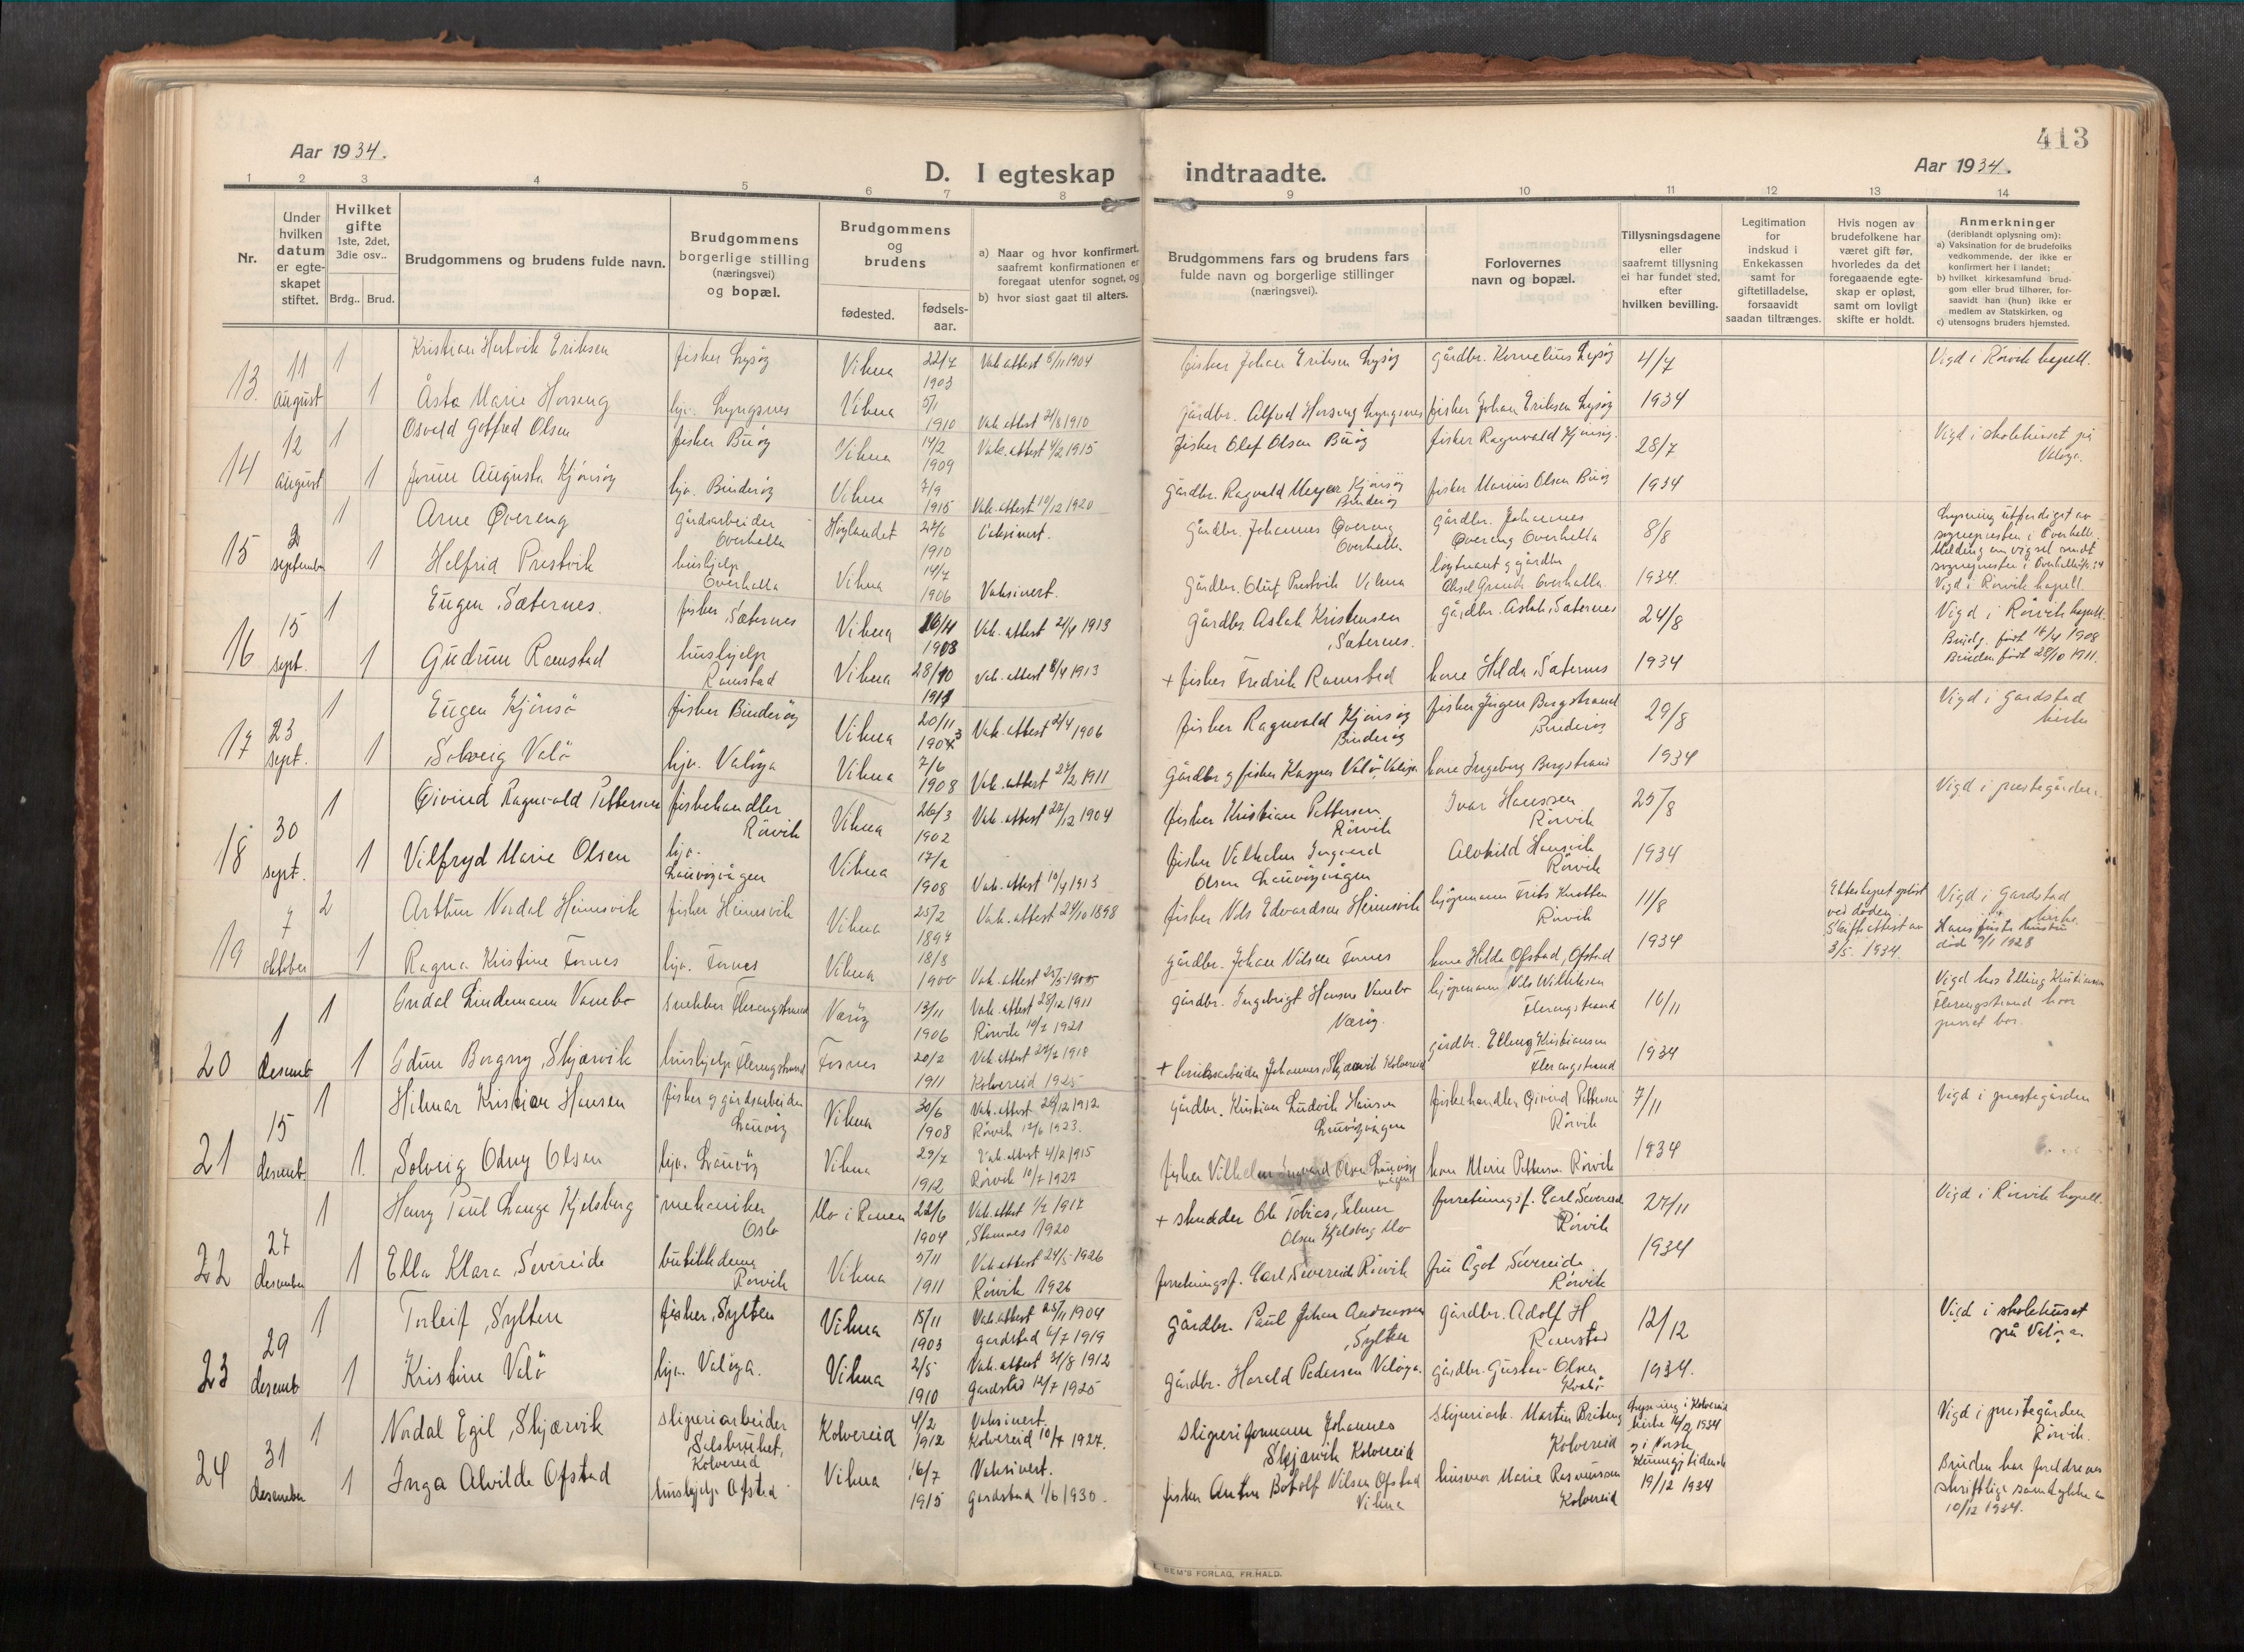 413
Aar 1934.
Aar 1934.
D. I egteskap indtraadte.
1 2 3 4 5 6 7 8 9 10 11 12 13 14
Nr.
Under hvilken datum er egteskapet stiftet.
Hvilket gifte 1ste, 2det, 3die osv..
Brdg.. Brud.
Brudgommens og brudens fulde navn.
Brudgommens borgerlige stilling (næringsvei) og bopæl.
Brudgommens og brudens
fødested.
fødsels-aar.
a) Naar og hvor konfirmert, saafremt konfirmationen er foregaat utenfor sognet, og
b) hvor sidst gaat til alters.
Brudgommens fars og brudens fars fulde navn og borgerlige stillinger (næringsvei).
Forlovernes navn og bopæl.
Tillysningsdagene eller saafremt tillysning ei har fundet sted, efter hvilken bevilling.
Legitimation for indskud i Enkekassen samt for giftetilladelse, forsaavidt saadan tiltrænges.
Hvis nogen av brudefolkene har været gift før, hvorledes da det foregaaende egteskap er opløst, samt om lovligt skifte er holdt.
Anmerkninger (deriblandt oplysning om):
a) Vaksination for de brudefolks vedkommende, der ikke er konfirmert her i landet;
b) hvilket kirkesamfund brudgom eller brud tilhører, forsaavidt han (hun) ikke er medlem av Statskirken, og
c) utensogns bruders hjemsted.
13. 11 august 1 Kristian Hartvik Eriksen fisker Lysøy Vikna 22/7 1903 Vak. attest 5/11 1904 fisker Johan Eriksen Lysøy gårdbr. Kornelius Lysøy 4/7 Vigd i Rørvik kapell.
1 Åsta Marie Horseng hjv. Lyngsnes Vikna 5/1 1910 Vak. attest 24/8 1910 gårdbr. Alfred Horseng Lyngsnes fisker Johan Eriksen Lysøy 1934
14 12 august 1 Osvald Gotfred Olsen fisker Buøy Vikna 14/2 1909 Vak. attest 4/2 1915 fisker Olaf Olsen Buøy fisker Ragnvald Kjønsøy. 28/7 Vigd i skolehuset på Valøya.
1 Jorun Augusta Kjønsøy hjv. Binderøy Vikna 7/9 1915 Vak. attest 10/12 1920 gårdbr. Ragnvald Meyer Kjønsøy Binderøy fisker Marius Olsen Buøy 1934
15 2 september 1 Arne Øvereng gårdsarbeider Overhalla Høylandet 27/6 1910 Vaksinert. gårdbr. Johannes Øvereng Overhalla gårdbr. Johannes Øvereng Overhalla 8/8 Lysning utferdiget av sognepresten i Overhalla. Melding om vigsel sendt sognepresten i Overhalla
1 Helfrid Prestvik hushjelp Overhalla Vikna 14/7 1906 Vaksinert. gårdbr. Oluf Prestvik Vikna løytnant og gårdbr. Overhalla. 1934. Vigd i Rørvik kapell
16 15 sept. 1 Eugen Sæternes. fisker Sæternes Vikna 16/4 1908 Vak. attest 2/4 1913 gårdbr. Aslak Kristensen Sæternes. gårdbr. Aslak Sæternes 24/8 Vigd i Rørvik kapell. Brudg. født 16/4 1908
1 Gudrun Ramstad hushjelp Ramstad Vikna 28/10 1911 Vak. attest 8/4 1913 + fisker Fredrik Ramstad kone Hilda Sæternes 1934 Bruden født 28/10 1911.
17 23 sept. 1 Eugen Kjønsø fisker Binderøy Vikna 20/11 1903 Vak. attest 2/4 1906 fisker Ragnvald Kjønsøy Binderøy fisker Jørgen Bergstrand Binderøy 29/8 Vigd i Gardstad kirke
1 Solveig Valø hjv. Valøya Vikna 7/6 1908 Vak. attest 27/2 1911 gårdbr. og fisker Kasper Valø, Valøya kone Ingeborg Bergstrand 1934
18 30 sept. 1 Øivind Ragnvald Pettersen fiskehandler Rørvik Vikna 26/3 1902 Vak. attest 27/12 1904 fisker Kristian Pettersen Rørvik Ivar Hanssen Rørvik 25/8 Vigd i prestegården.
1 Vilfryd Marie Olsen hjv. Lauvøyvågen Vikna 17/2 1908 Vak. attest 10/4 1913 fisker Vilhelm Ingvard Olsen Lauvøyvågen Alvhild Hansvik Rørvik 1934
19 7 oktober 2 Arthur Nordal Heimsvik fisker Heimsvik Vikna 25/2 1897 Vak. attest 24/10 1898 fisker Nils Edvardsen Heimsvik kjøpmann Frits Knotten Rørvik 11/8 Ekteskapet opløst ved døden. Skifteattest av 3/5 1934. Vigd i Gardstad kirke. Hans første hustru død 9/1 1928
1 Ragna Kristine Fornes hjv. Fornes Vikna 18/8 1900 Vak. attest 25/5 1905 gårdbr. Johan Nilsen Fornes kone Hilda Ofstad, Ofstad 1934
20 1 desemb 1 Indal Lindemann Vanebo snekker Flerengstrand Nærøy 13/11 1906 Vak. attest 28/12 1911 Rørvik 10/7 1921 gårdbr. Ingebrigt Hansen Vanebo Nærøy. kjøpmann Nils Wilhelmsen Flerengstrand 10/11 Vigd hos Elling Kristiansen Flerengstrand hvor parret bor.
1 Gdrun Borgny Skjærvik hushjelp Flerengstrand Fosnes 20/2 1911 Vak attest 27/7 1918 Kolvereid 1925 + bruksarbeider Johannes Skjærvik Kolvereid gårdbr. Elling Kristiansen Flerengstrand 1934
21 15 desemb 1 Hilmar Kristian Hansen fisker og gårdsarbeider Lauvøy Vikna 30/6 1908 Vak. attest 28/12 1912 Rørvik 17/6 1923. gårdbr. Kristian Ludvik Hansen Lauvøyvågen fiskehandler Øivind Pettersen Rørvik 7/11 Vigd i prestegården
1. Solveig Odny Olsen hjv. Lauvøy Vikna 29/7 1912 Vak attest 4/2 1915 Rørvik 10/7 1927 fisker Vilhelm Ingvard Olsen Lauvøyvågen kone Marie Pettersen Rørvik 1934
22 27 desember 1 Henry Paul Lange Kjelsberg mekaniker Oslo Mo i Ranen 22/6 1904 Vak. attest 1/7 1917 Stamnes 1920 + skredder Ole Tobias Selmer Olsen Kjelsberg Mo forretningsf. Carl Severeide Rørvik 27/11 Vigd i Rørvik kapell.
1 Ella Klara Severeide butikkdame Rørvik Vikna 5/11 1911 Vak attest 24/5 1926 Rørvik 1926 forretningsf. Carl Severeide Rørvik fru Ågot Severeide Rørvik 1934
23 29 desemb 1 Torleif Sylten fisker Sylten Vikna 15/11 1903 Vak. attest 25/11 1904 Gardstad 6/7 1919 gårdbr. Paul Johan Andreassen Sylten gårdbr. Adolf H Ramstad 12/12 Vigd i skolehuset på Valøya.
1 Kristine Valø hjv. Valøya. Vikna 2/5 1910 Vak. attest 31/8 1912 Gardstad 12/7 1925 gårdbr. Harald Pedersen Valøya. gårdbr. Gustav Olsen 1934.
24 31 desember 1 Nordal Egil Skjærvik sliperiarbeider Salsbruket, Kolvereid Kolvereid 4/2 1912 Vaksinert. Kolvereid 10/7 1927. sliperiformann Johannes Skjærvik Kolvereid sliperiarb. Martin Kolvereid Lysning i Kolvereid kirke 16/12 1934 og i Norsk Kunngj.tidende 19/12 1934 Vigd i prestegården Rørvik.
1 Inga Alvilde Ofstad hushjelp Ofstad Vikna 16/7 1915 Vaksinert. Gardstad 1/6 1930. fisker Anton Botolf Nilsen Ofstad Vikna husmor Marie Rasmussen Kolvereid Bruden har foreldrenes skriftlige samtykke av 10/12 1934.
SEM'S FORLAG, FR.HALD.